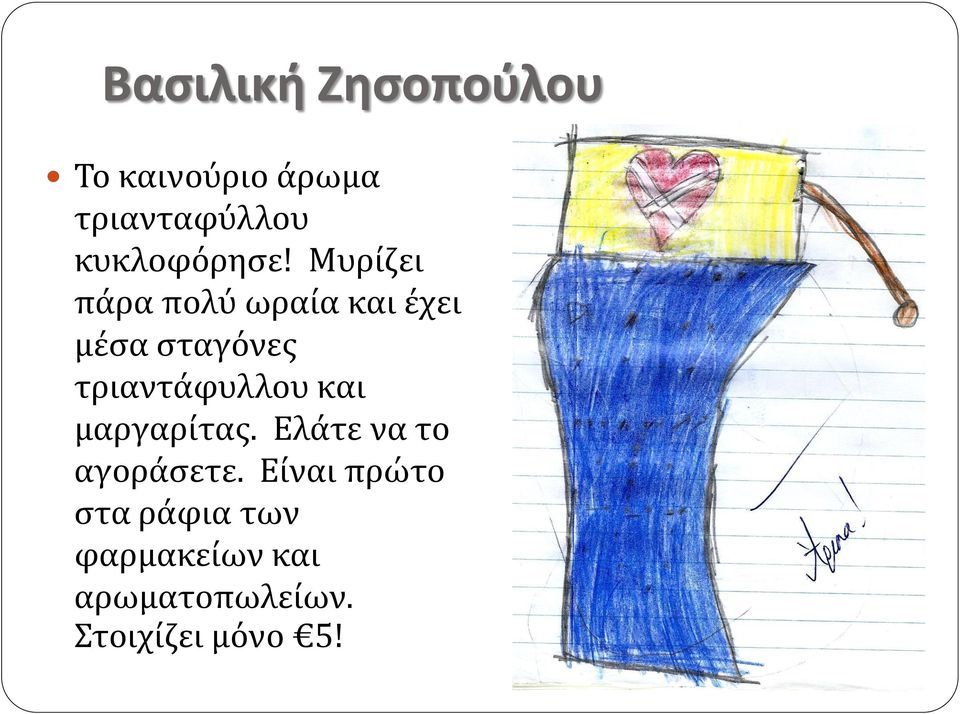 Βασιλική Ζησοπούλου
• Το καινούριο άρωμα
τριανταφύλλου
κυκλοφόρησε! Μυρίζει
πάρα πολύ ωραία και έχει
μέσα σταγόνες
τριαντάφυλλου και
μαργαρίτας. Ελάτε να το
αγοράσετε. Είναι πρώτο
στα ράφια των
φαρμακείων και
αρωματοπωλείων.
Στοιχίζει μόνο €5!
Άρωμα!